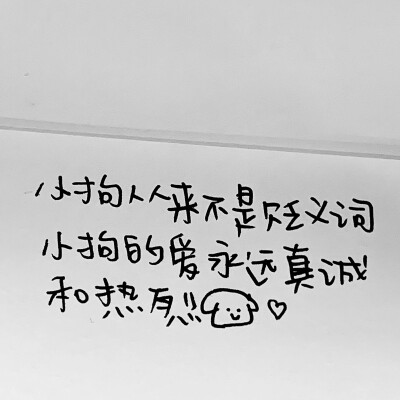 小狗从来不是贬义词
小狗的爱永远真诚
和热烈